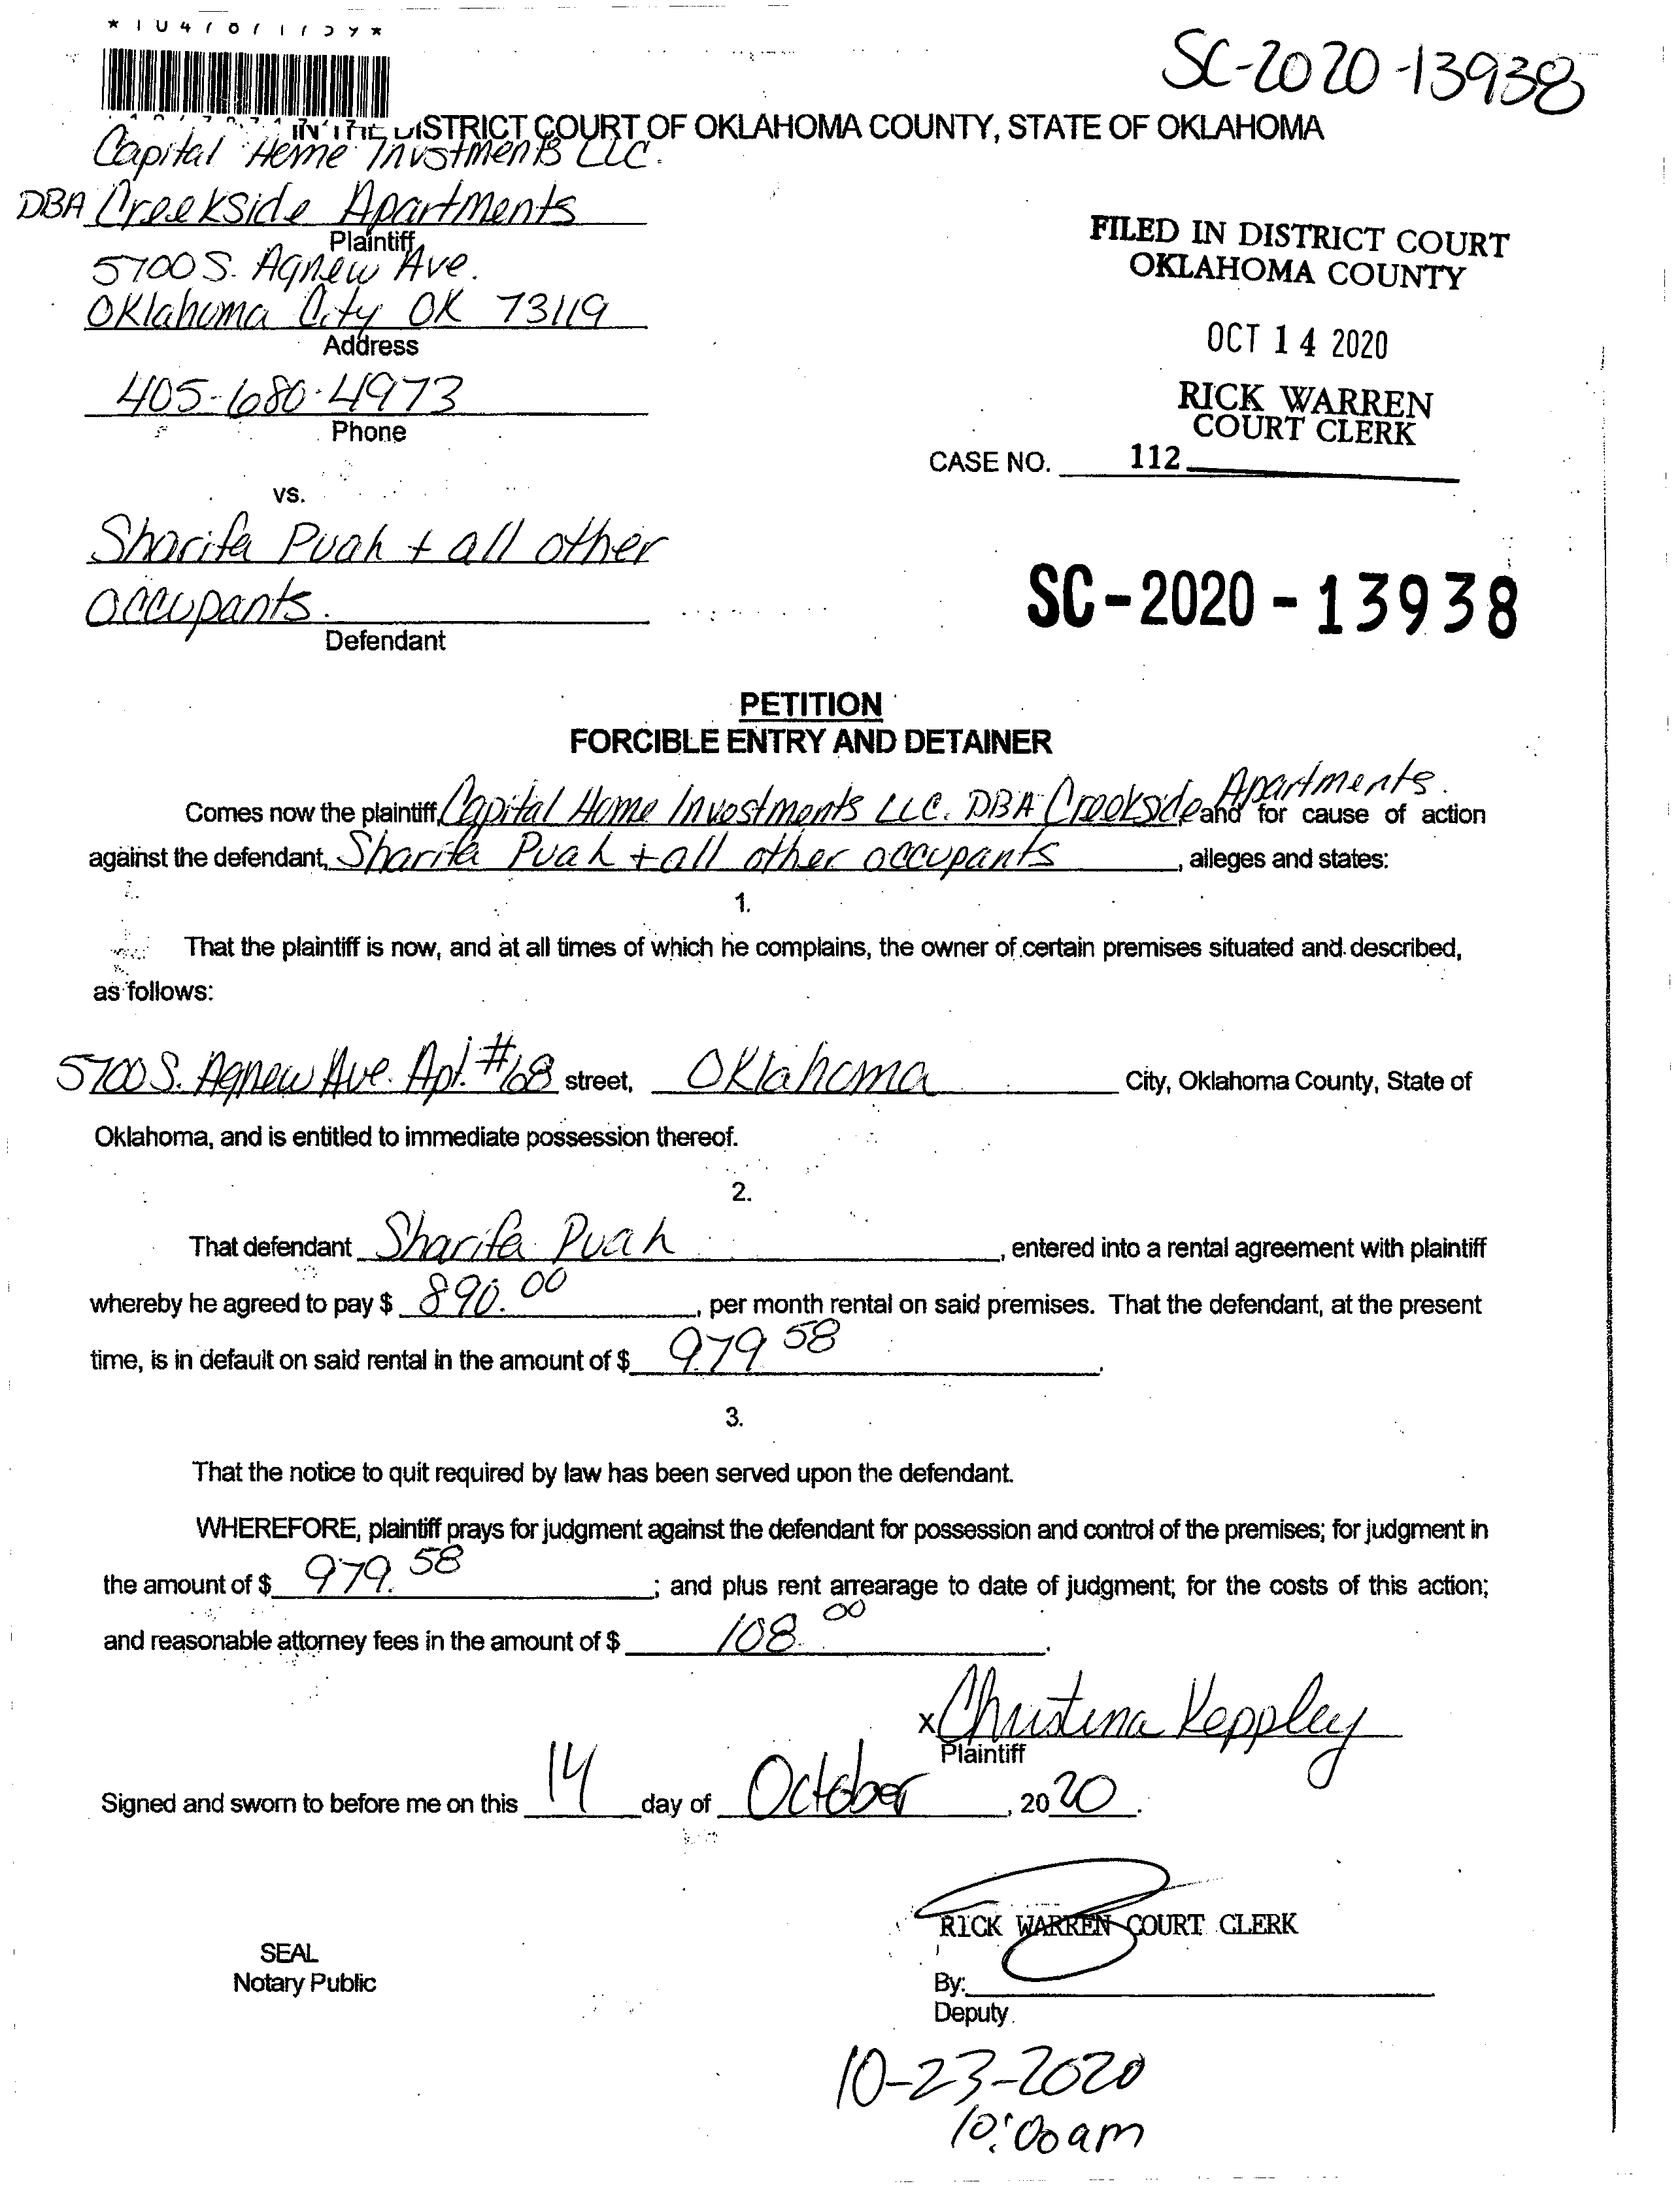 SC-2020-13938
IN THE DISTRICT COURT OF OKLAHOMA COUNTY, STATE OF OKLAHOMA
Capital Home Invstments LLC.
DBA Creekside Apartments
Plaintiff
5700 S. Agnew Ave.
Oklahoma City OK 73119
Address
405-680-4973
Phone
FILED IN DISTRICT COURT
OKLAHOMA COUNTY
OCT 14 2020
RICK WARREN
COURT CLERK
CASE NO. 112
vs.
Sharifa Puah + all other
occupants.
Defendant
SC-2020-13938
PETITION
FORCIBLE ENTRY AND DETAINER
Comes now the plaintiff, Capital Home Investments LLC. DBA Creekside Apartments. and for cause of action
against the defendant, Sharifa Puah + all other occupants, alleges and states:
1.
That the plaintiff is now, and at all times of which he complains, the owner of certain premises situated and described,
as follows:
5700 S. Agnew Ave. Apt. #168 street, Oklahoma City, Oklahoma County, State of
Oklahoma, and is entitled to immediate possession thereof.
2.
That defendant Sharifa Puah, entered into a rental agreement with plaintiff
whereby he agreed to pay $ 890.00, per month rental on said premises. That the defendant, at the present
time, is in default on said rental in the amount of $ 979.58.
3.
That the notice to quit required by law has been served upon the defendant.
WHEREFORE, plaintiff prays for judgment against the defendant for possession and control of the premises; for judgment in
the amount of $ 979.58; and plus rent arrearage to date of judgment; for the costs of this action;
and reasonable attorney fees in the amount of $ 108.00.
x Christina Keppley
Plaintiff
Signed and sworn to before me on this 14 day of October, 2020.
RICK WARREN COURT CLERK
SEAL
Notary Public
By:
Deputy
10-23-2020
10:00am